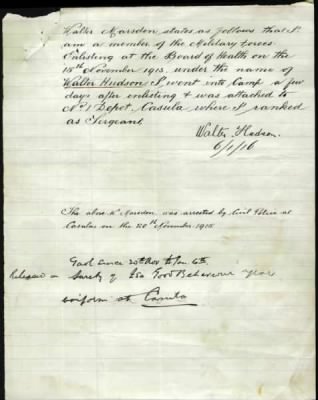 Walter Marsden, states as follows that I
am a member of the Military Forces
Enlisting at the Board of Health on the
15th November 1915. under the name of
Walter Hudson, I went into Camp a few
days after enlisting & was attached to
No 1 Depot, Casula, where I ranked
as Sergeant.
Walter Hudson.
6/1/16
The above W Marsden, was arrested by Civil Police at
Casula on the 20th November 1915
Gaol since 20th Nov to Jan 6th
Released on Surety of £50 Good Behaviour
uniform at Casula